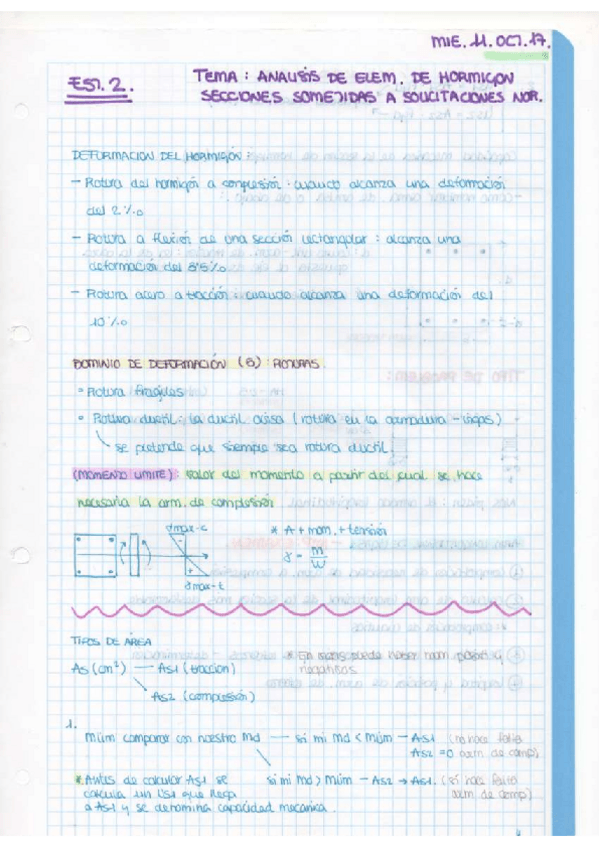 MIE. 11. OCT. 17.
EST. 2.
TEMA : ANALISIS DE ELEM. DE HORMIGON
SECCIONES SOMETIDAS A SOLICITACIONES NOR.
DEFORMACION DEL HORMIGÓN :
– Rotura del hormigón a compresión : cuando alcanza una deformación
del 2 %o
– Rotura a flexión de una sección rectangular : alcanza una
deformación del 3'5 %o
– Rotura acero a tracción : cuando alcanza una deformación del
10 %o
DOMINIO DE DEFORMACIÓN (5) : ROTURAS.
Rotura Frágiles
Rotura ductil : la ductil avisa (rotura en la armadura - vigas)
se pretende que siempre sea rotura ductil.
(MOMENTO LIMITE) : valor del momento a partir del cual se hace
necesaria la arm. de compresión
σmax-c
* A + mom. + tensión
σ = M/W
σmax-t
TIPOS DE ÁREA
As (cm²) → As1 (traccion)
As2 (compresión)
* En mans puede haber mom positivos y
negativos.
1.
Mlím comparar con nuestro Md — si mi Md < Mlím → As1 (no hace falta
As2 = 0 arm. de comp)
si mi Md > Mlím – As2 → As1. (sí hace falta
arm. de comp)
* Antes de calcular As1 se
calcula un Us1 que llega
a As1 y se denomina capacidad mecanica.